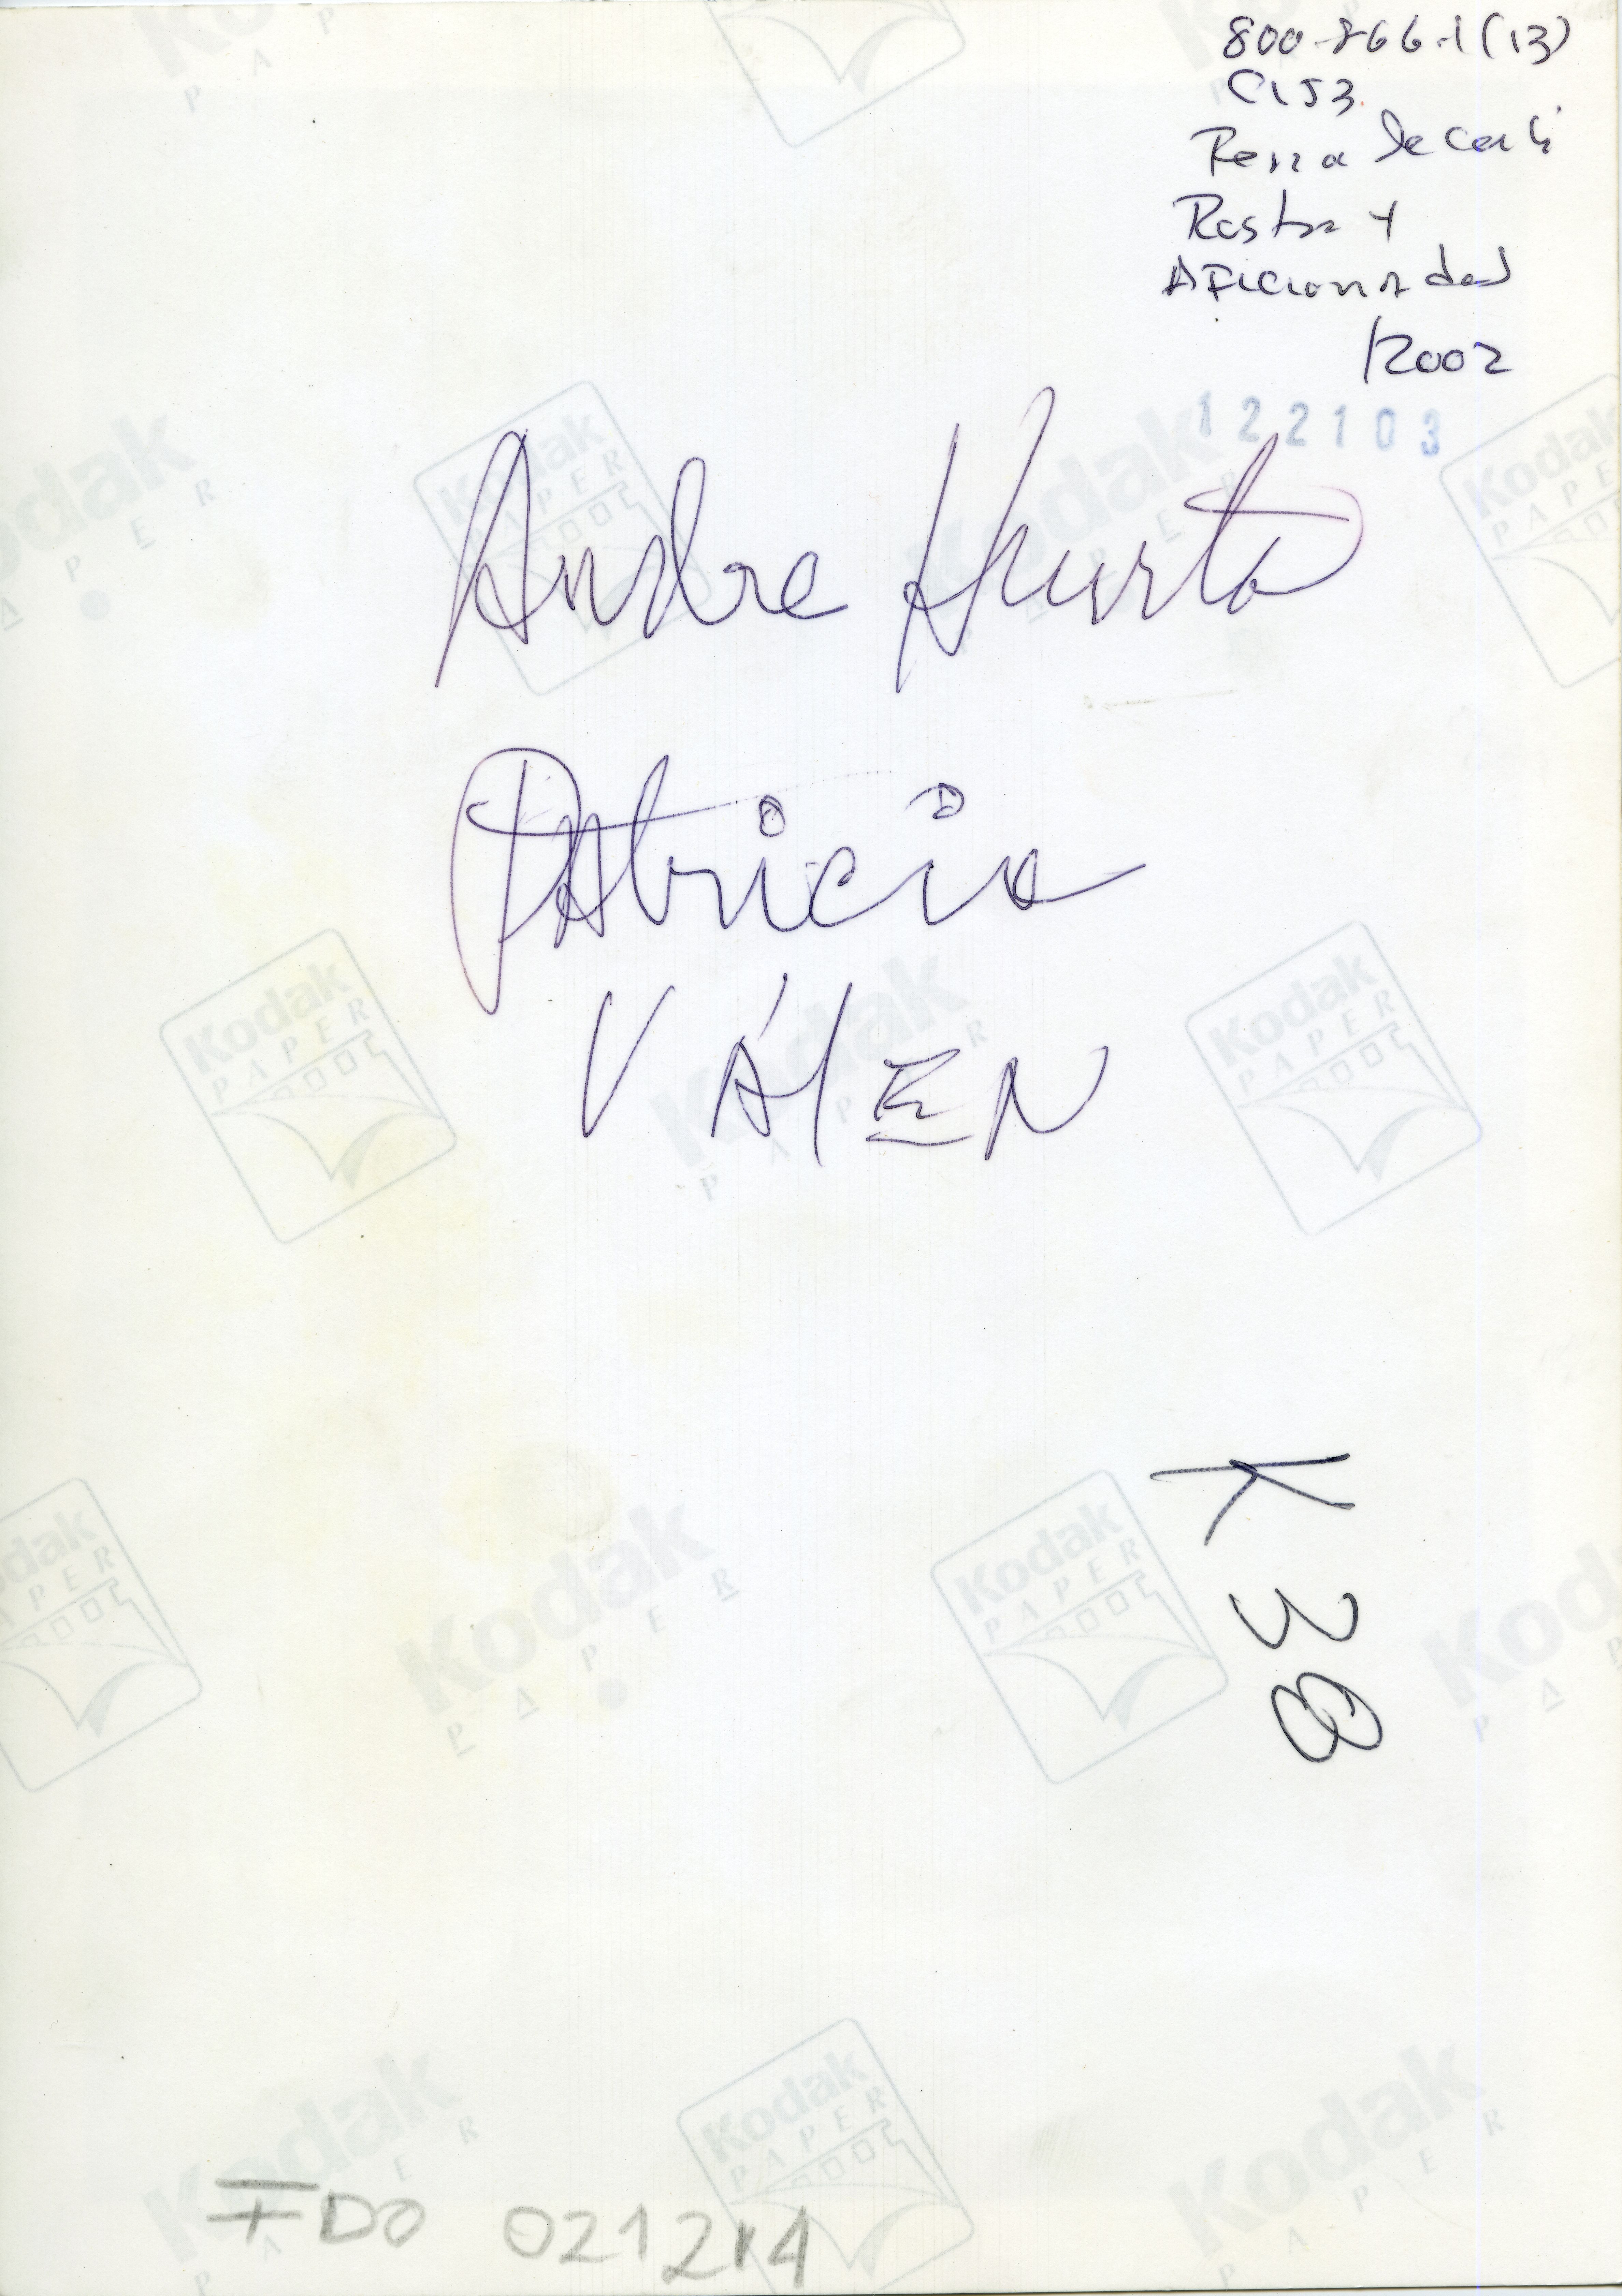 800-866-1(13)
C153
Feria de Cali
Rostro y
Aficionados
/2002
122103
Andre Hurto
Patricia
VÁlEN
K 38
FDO 021214
Kodak
PAPER